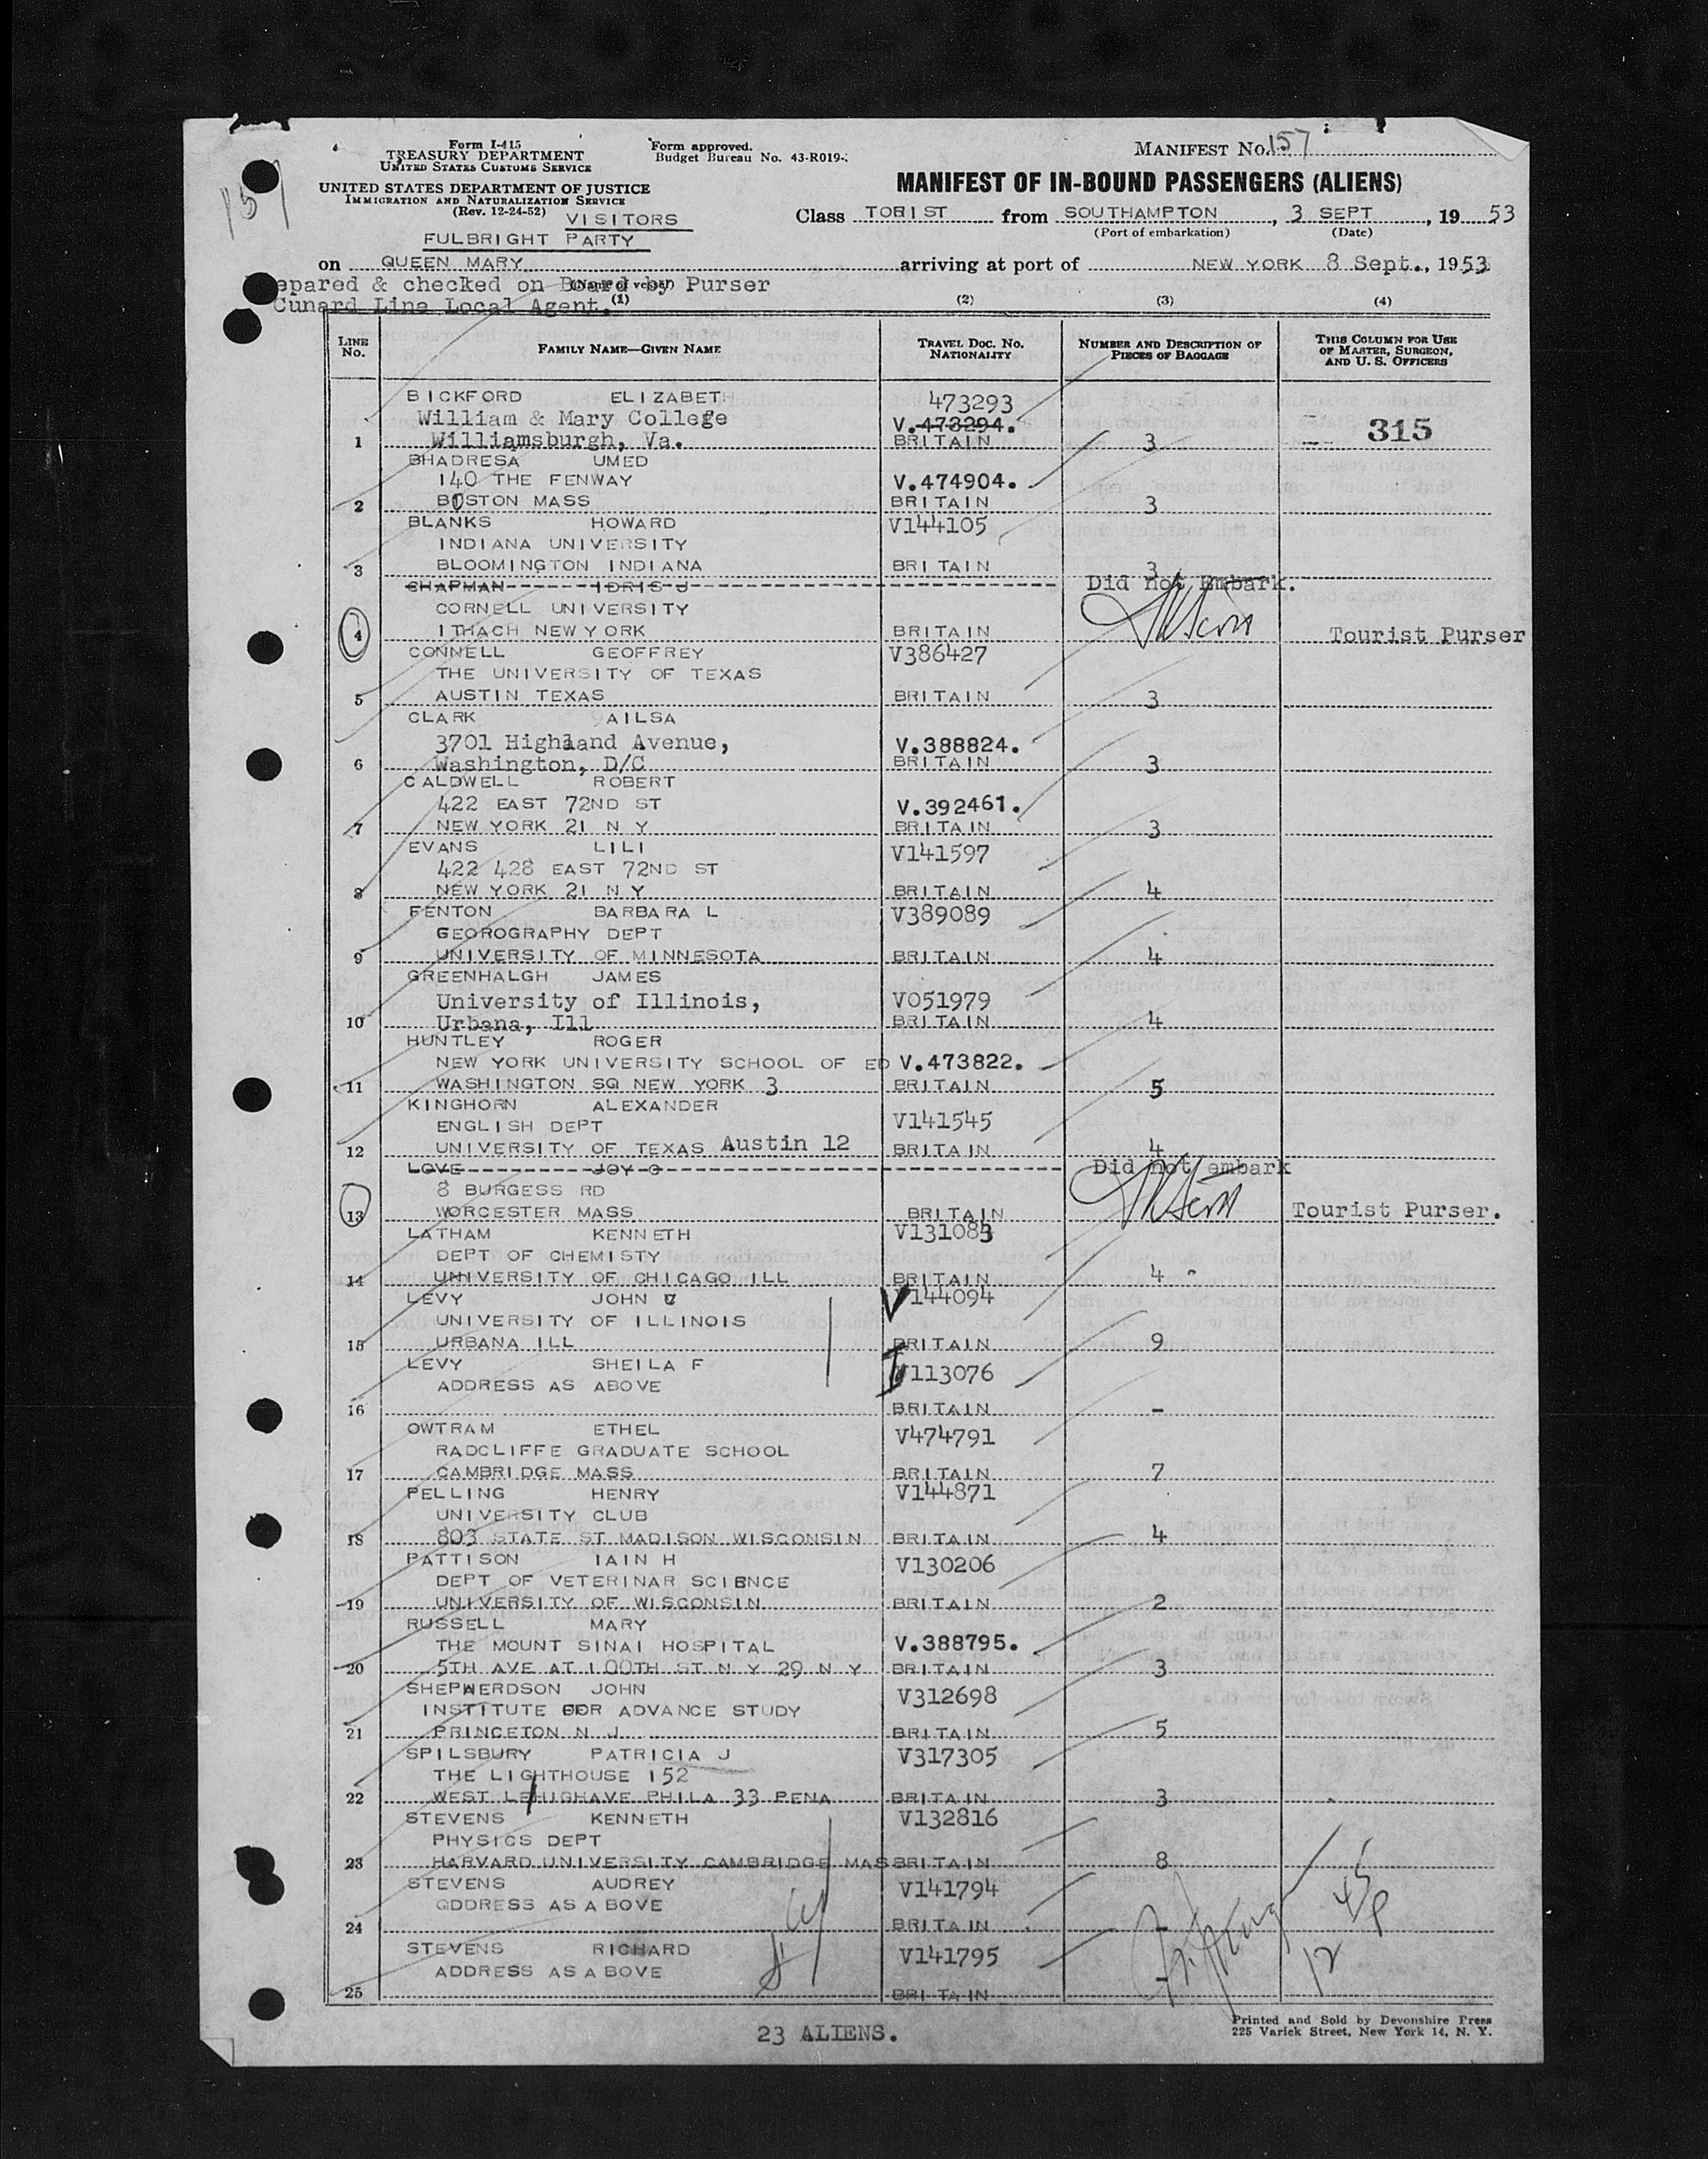 Form I-415
TREASURY DEPARTMENT
UNITED STATES CUSTOMS SERVICE
Form approved.
Budget Bureau No. 43-R019-
MANIFEST No. 157
159
UNITED STATES DEPARTMENT OF JUSTICE
IMMIGRATION AND NATURALIZATION SERVICE
(Rev. 12-24-52)
VISITORS
FULBRIGHT PARTY
MANIFEST OF IN-BOUND PASSENGERS (ALIENS)
Class TORIST from SOUTHAMPTON, 3 SEPT, 19 53
(Port of embarkation) (Date)
on QUEEN MARY arriving at port of NEW YORK 8 Sept., 1953
(Name of vessel)
epared & checked on Board by Purser
Cunard Line Local Agent.
(1) (2) (3) (4)
LINE No. FAMILY NAME—GIVEN NAME TRAVEL DOC. No. NATIONALITY NUMBER AND DESCRIPTION OF PIECES OF BAGGAGE THIS COLUMN FOR USE OF MASTER, SURGEON, AND U. S. OFFICERS
BICKFORD ELIZABETH 473293
William & Mary College V.473294. 315
1 Williamsburgh, Va. BRITAIN 3
BHADRESA UMED
140 THE FENWAY V.474904.
2 BOSTON MASS BRITAIN 3
BLANKS HOWARD V144105
INDIANA UNIVERSITY
3 BLOOMINGTON INDIANA BRITAIN 3
CHAPMAN IDRIS J Did not Embark.
CORNELL UNIVERSITY
4 ITHACH NEW YORK BRITAIN Tourist Purser
CONNELL GEOFFREY V386427
THE UNIVERSITY OF TEXAS
5 AUSTIN TEXAS BRITAIN 3
CLARK AILSA
3701 Highland Avenue, V.388824.
6 Washington, D/C BRITAIN 3
CALDWELL ROBERT
422 EAST 72ND ST V.392461.
7 NEW YORK 21 N Y BRITAIN 3
EVANS LILI V141597
422 428 EAST 72ND ST
8 NEW YORK 21 N Y BRITAIN 4
FENTON BARBARA L V389089
GEOROGRAPHY DEPT
9 UNIVERSITY OF MINNESOTA BRITAIN 4
GREENHALGH JAMES
University of Illinois, V051979
10 Urbana, Ill BRITAIN 4
HUNTLEY ROGER
NEW YORK UNIVERSITY SCHOOL OF ED V.473822.
11 WASHINGTON SQ NEW YORK 3 BRITAIN 5
KINGHORN ALEXANDER
ENGLISH DEPT V141545
12 UNIVERSITY OF TEXAS Austin 12 BRITAIN 4
LOVE JOY C Did not embark
8 BURGESS RD
13 WORCESTER MASS BRITAIN Tourist Purser.
LATHAM KENNETH V131083
DEPT OF CHEMISTY
14 UNIVERSITY OF CHICAGO ILL BRITAIN 4
LEVY JOHN V144094
UNIVERSITY OF ILLINOIS
15 URBANA ILL BRITAIN 9
LEVY SHEILA F V113076
ADDRESS AS ABOVE
16 BRITAIN -
OWTRAM ETHEL V474791
RADCLIFFE GRADUATE SCHOOL
17 CAMBRIDGE MASS BRITAIN 7
PELLING HENRY V144871
UNIVERSITY CLUB
18 803 STATE ST MADISON WISCONSIN BRITAIN 4
PATTISON IAIN H V130206
DEPT OF VETERINAR SCIENCE
19 UNIVERSITY OF WISCONSIN BRITAIN 2
RUSSELL MARY
THE MOUNT SINAI HOSPITAL V.388795.
20 5TH AVE AT 100TH ST N Y 29 N Y BRITAIN 3
SHEPHERDSON JOHN V312698
INSTITUTE FOR ADVANCE STUDY
21 PRINCETON N J BRITAIN 5
SPILSBURY PATRICIA J V317305
THE LIGHTHOUSE 152
22 WEST LEHIGHAVE PHILA 33 PENA BRITAIN 3
STEVENS KENNETH V132816
PHYSICS DEPT
23 HARVARD UNIVERSITY CAMBRIDGE MAS BRITAIN 8
STEVENS AUDREY V141794
GDDRESS AS ABOVE
24 BRITAIN -
STEVENS RICHARD V141795
ADDRESS AS ABOVE 12
25 BRITAIN -
23 ALIENS.
Printed and Sold by Devonshire Press
225 Varick Street, New York 14, N. Y.